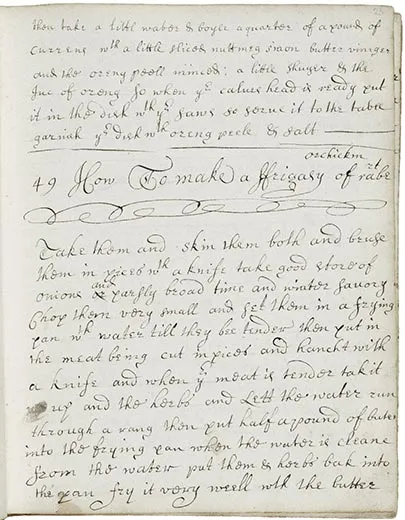 then take a littl water & boyle a quarter of a pound of
Currens wth a little sliced nuttmeg sinon butter viniger
and the oreng peell minced: a little shuger & the
Juc of oreng so when ye calues head is ready put
it in the dish wth ye saws so serue it to the table
garnish ye dish wth oreng peele & salt
orchickin
49 How To make a ffrigasy of rabet
Take them and skin them both and bruse
them in pices wth a knife take good store of
onions and parsly broad time and winter savory
Chop them very small and set them in a frying
pan wth water till they bee tender then put in
the meat being cut in pices and hanckt with
a knife and when ye meat is tender tak it
up and the herbs and Lett the water run
through a rang then put half a pound of buter
into the frying pan when the water is cleane
from the water put them & herbs bak into
the pan fry it very weell wth the butter